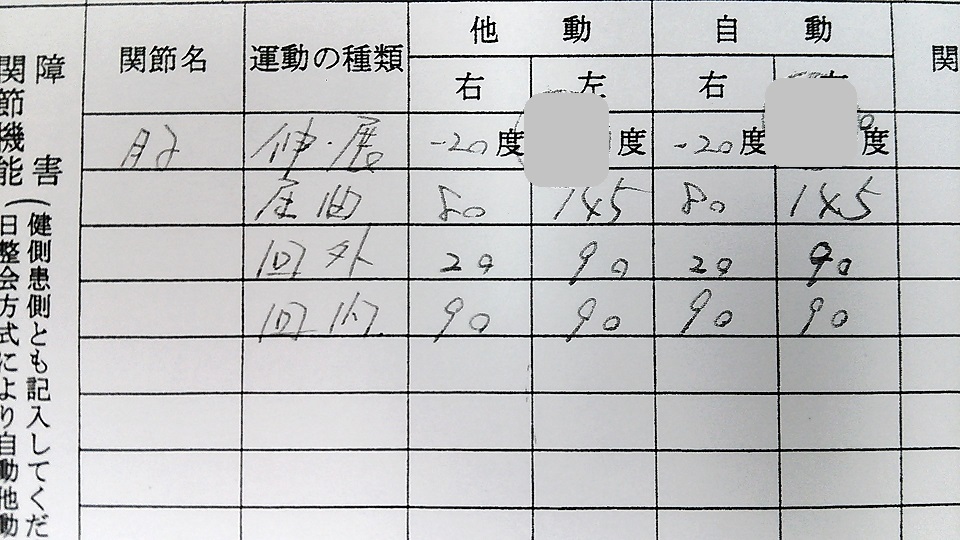 関節名 運動の種類 他動 自動 関
右 左 右
肘 伸・展 -20度 度 -20度 度
屈曲 80 145 80 145
回外 20 90 20 90
回内 90 90 90 90
障害
関節機能
(健側患側とも記入してくだ
日整会方式により自動他動